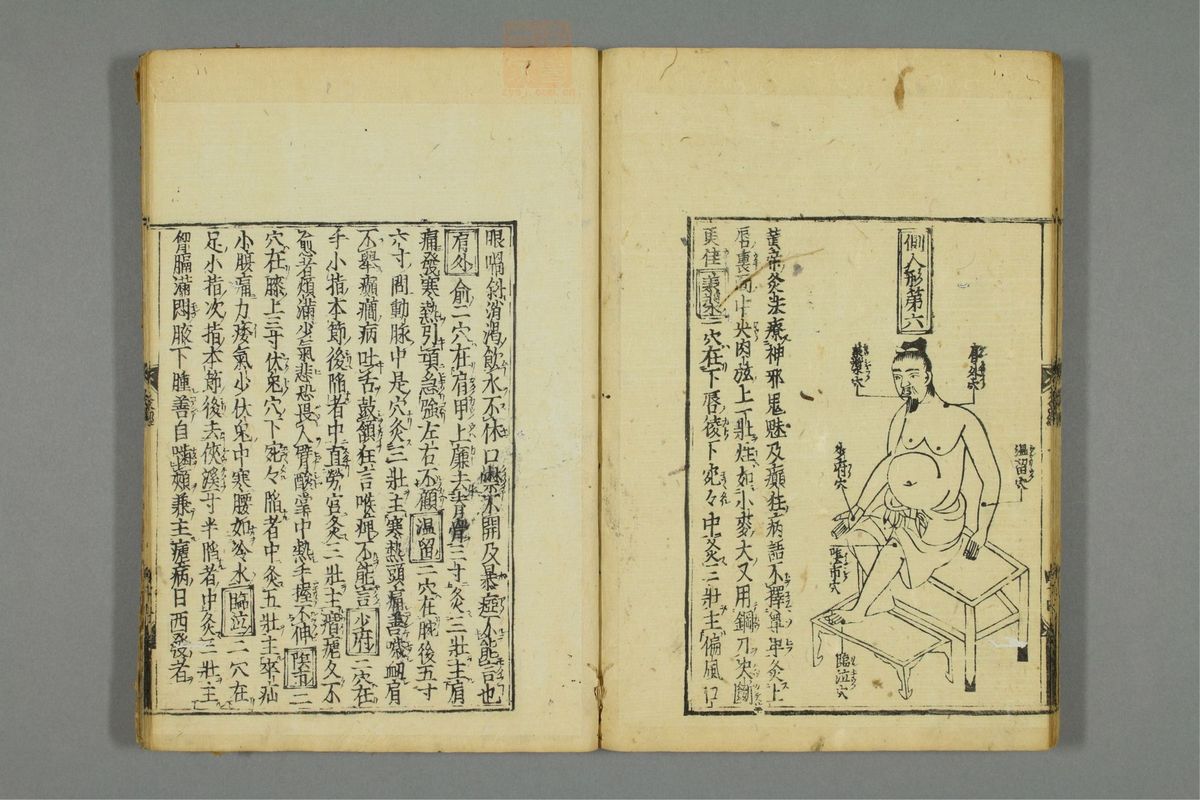 側人形第六
肩外穴
承漿穴
温留穴
少府穴
陰市穴
臨泣穴
黃帝灸法療神邪鬼魅及癲狂病語不擇尊卑灸上
唇裏面中央肉弦上一壯炷如小麥大又用鋼刀决斷
更佳承漿一穴在下唇稜下宛々中灸三壯主偏風口
眼喎斜消渴飲水不休口噤不開及暴瘂不能言也
肩外俞二穴在肩甲上廉去脊骨三寸灸三壯主肩
痛發寒熱引項急強左右不顧温留二穴在腕後五寸
六寸間動脉中是穴灸三壯主寒熱頭痛善噦衄肩
不舉癲癇病吐舌鼓頷狂言喉痺不能言少府二穴在
手小指本節後陷者中直勞宮灸三壯主痎瘧久不
愈者煩滿少氣悲恐畏人臂酸掌中熱手握不伸陰市二
穴在膝上三寸伏兔穴下宛々陷者中灸五壯主卒疝
小腹痛力痿氣少伏兔中寒腰如冷水臨泣二穴在
足小指次指本節後去俠溪寸半陷者中灸三壯主
胷膈滿悶腋下腫善自嚙頰兼主瘧病日西發者